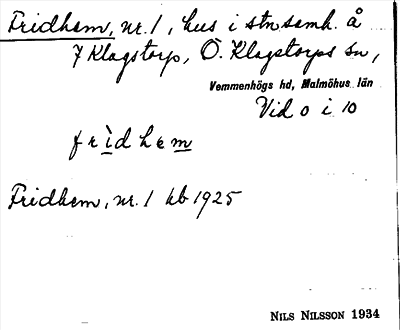 Fridhem, nr. 1, hus i stnsamh. å
7 Klagstorp, Ö. Klagstorps sn,
Vemmenhögs hd, Malmöhus län
Vid 0 i 10
frìdhem
Fridhem, nr. 1 kb 1925
NILS NILSSON 1934